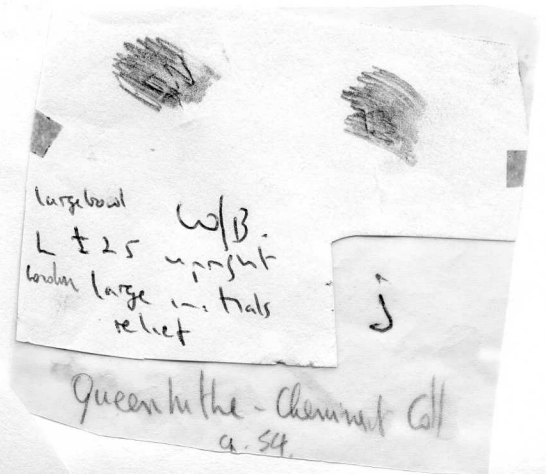 large bowl
W/B.
L ± 25 upright
London large initials
relief
j
Queenhithe - Cheminant Coll
a. 54.